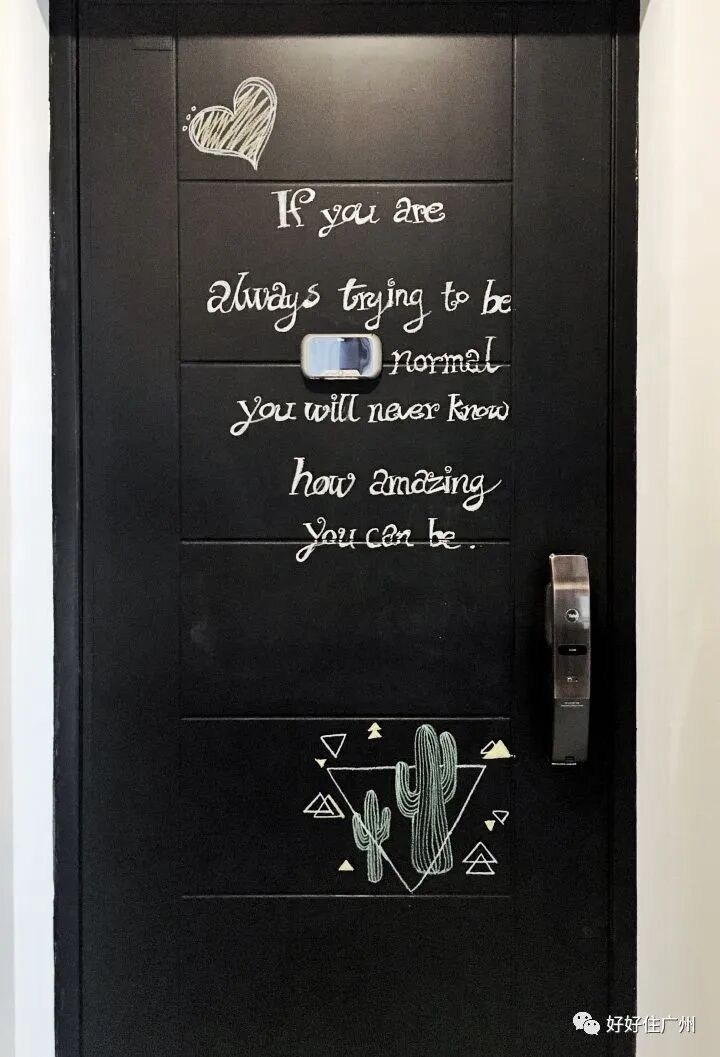 If you are
always trying to be
normal
you will never know
how amazing
you can be.
Yale
好好住广州